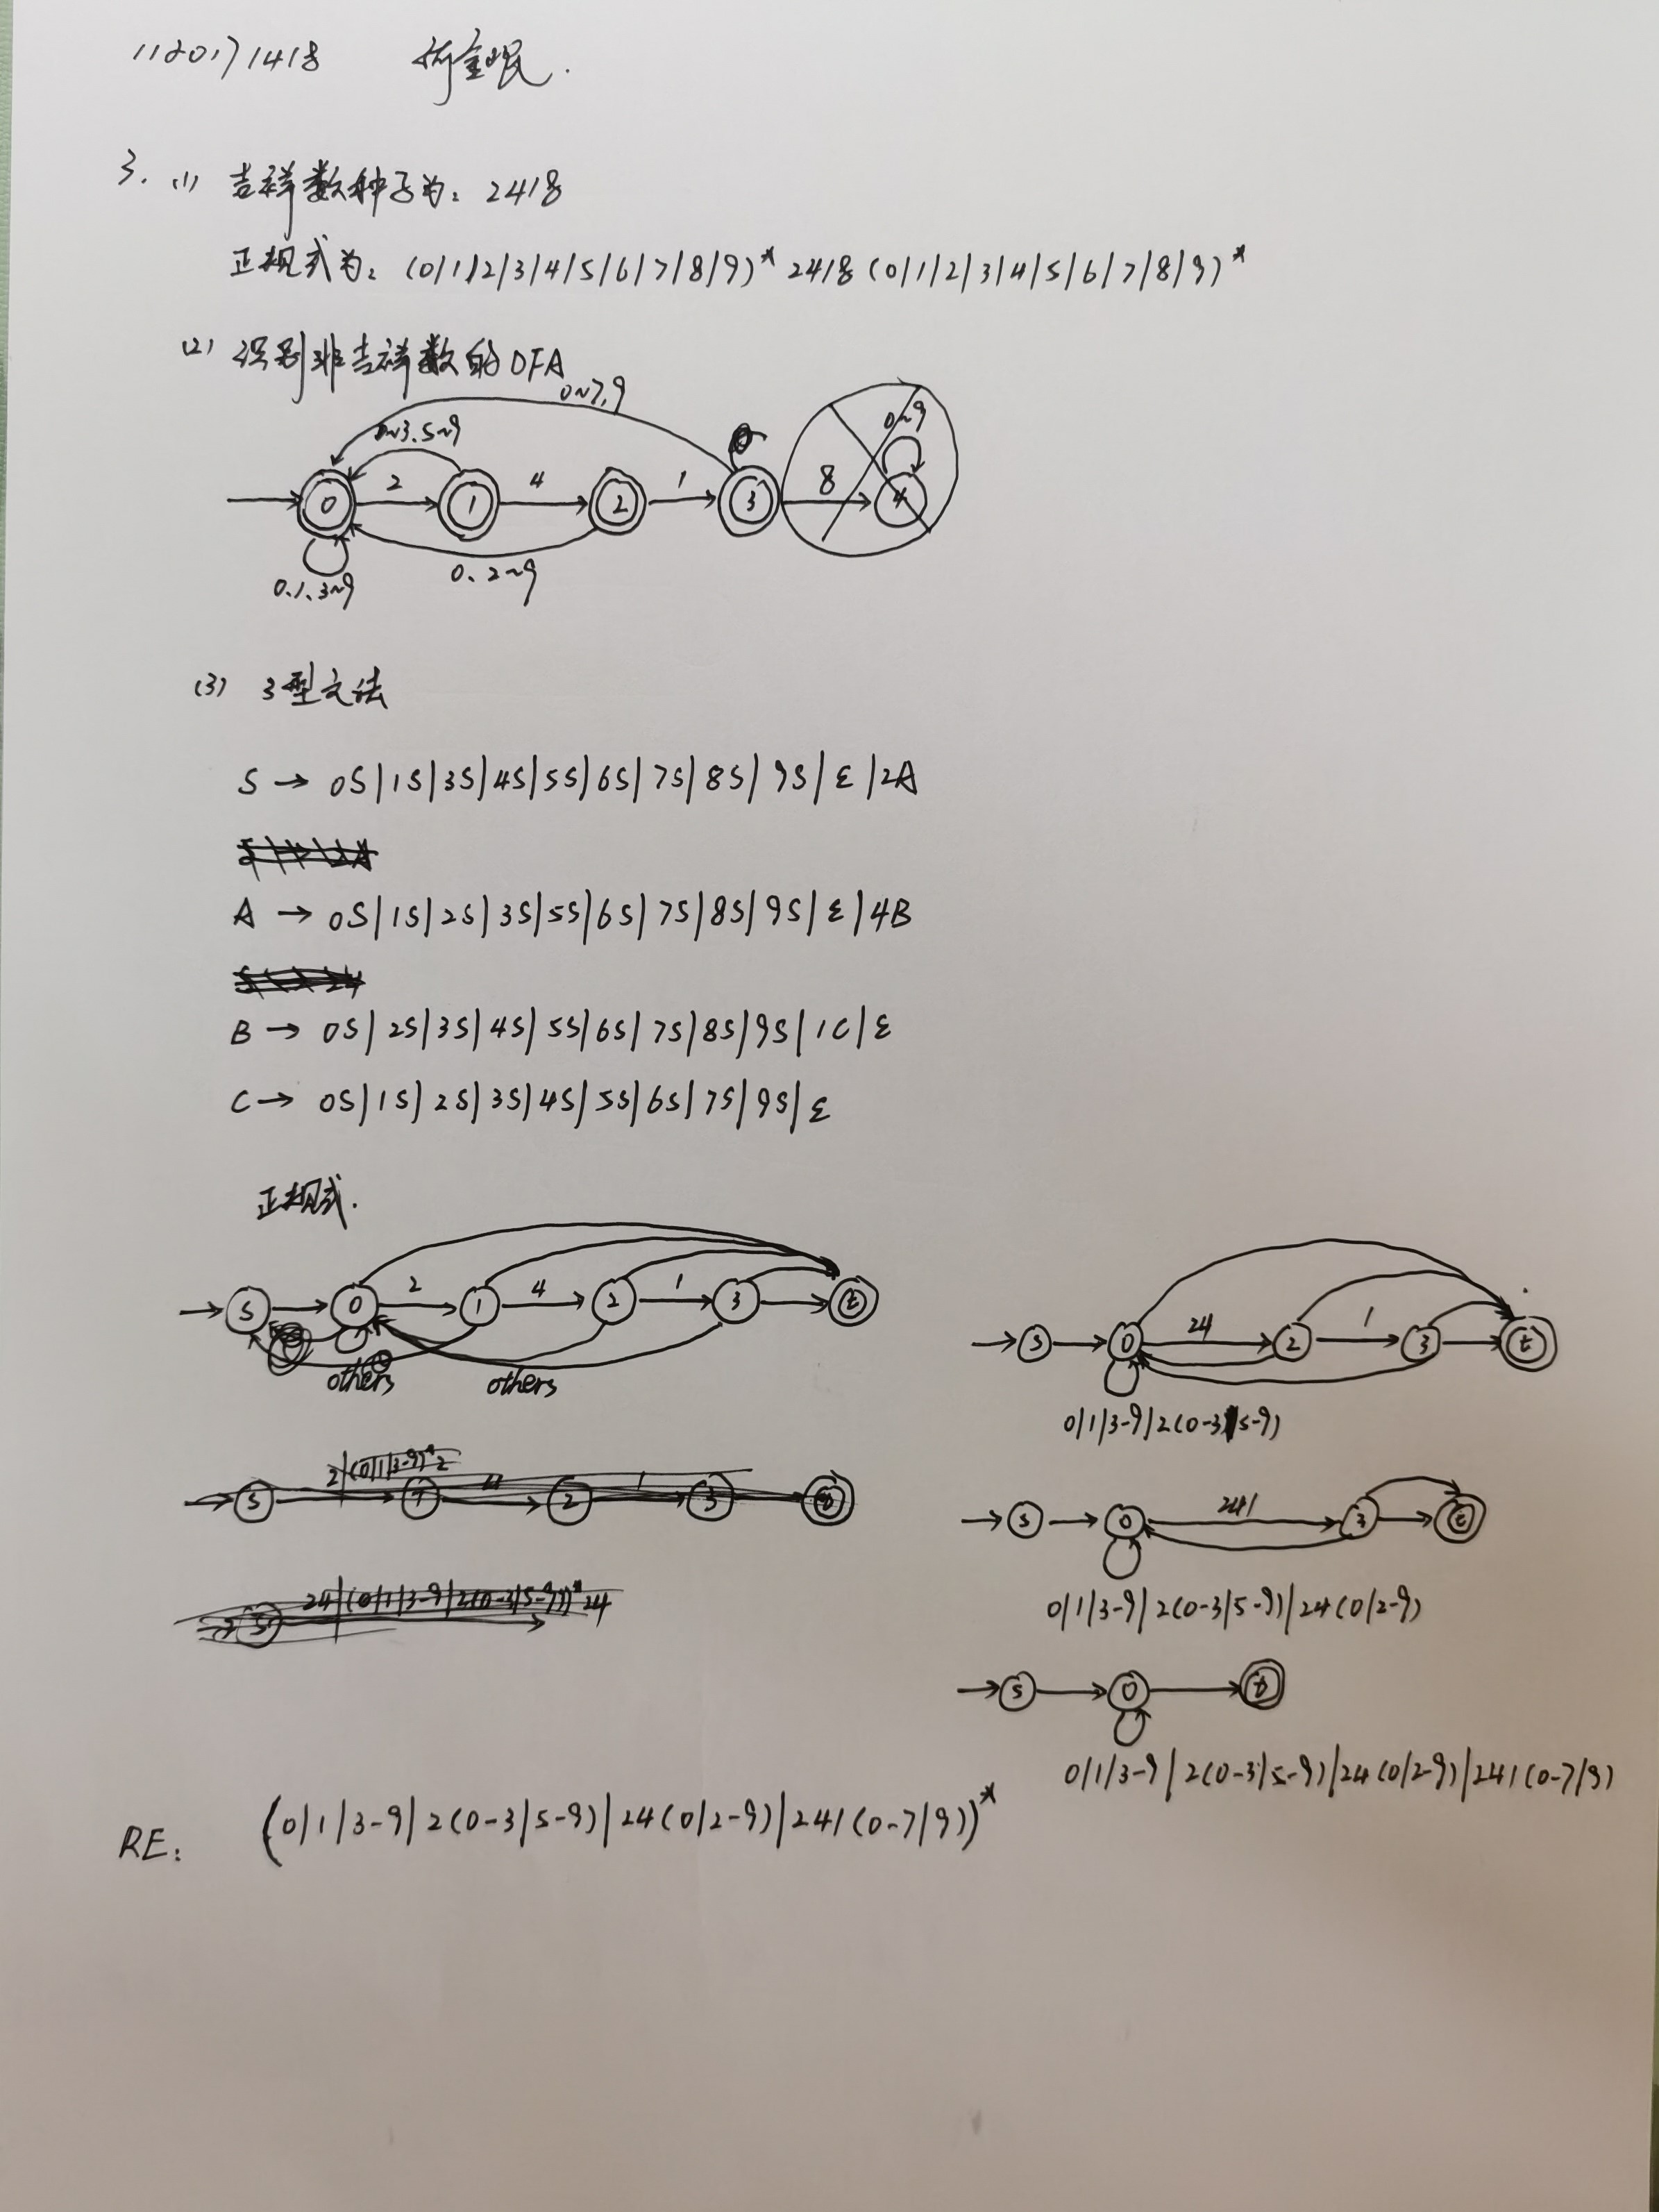 1120171418
3. (1) 吉祥数种子为: 2418
正规式为: (0|1|2|3|4|5|6|7|8|9)* 2418 (0|1|2|3|4|5|6|7|8|9)*
(2) 识别非吉祥数的DFA
0~7,9
0~3.5~9
0~9
0 2 1 4 2 1 3 8 4
0.1、3~9
0、2~9
(3) 3型文法
S → 0S|1S|3S|4S|5S|6S|7S|8S|9S|ε|2A
A → 0S|1S|2S|3S|5S|6S|7S|8S|9S|ε|4B
B → 0S|2S|3S|4S|5S|6S|7S|8S|9S|1C|ε
C → 0S|1S|2S|3S|4S|5S|6S|7S|9S|ε
正规式.
S 0 2 1 4 2 1 3 t
others others
S 0 24 2 1 3 t
0|1|3-9|2(0-3|5-9)
2|(0|1|3-9)*2
S 1 4 2 1 3 t
S 0 241 3 t
0|1|3-9|2(0-3|5-9)|24(0|2-9)
24|(0|1|3-9|2(0-3|5-9))*24
S
S 0 t
0|1|3-9|2(0-3|5-9)|24(0|2-9)|241(0-7|9)
RE: (0|1|3-9|2(0-3|5-9)|24(0|2-9)|241(0-7|9))*